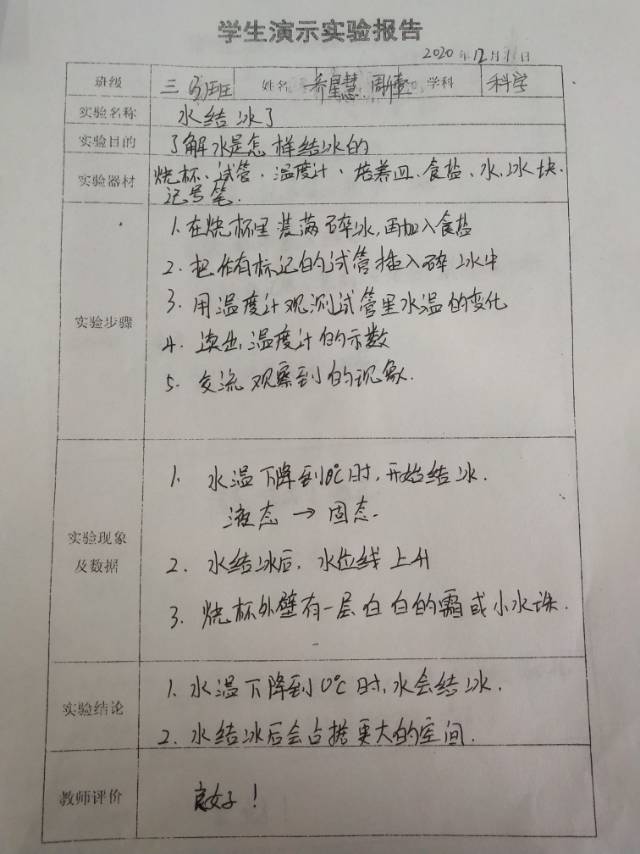 学生演示实验报告
2020年12月1日
班级 三 班 姓名 希星慧、周 学科 科学
实验名称 水结冰了
实验目的 了解水是怎样结冰的
实验器材 烧杯、试管、温度计、培养皿、食盐、水、冰块、
记号笔.
实验步骤
1.在烧杯里装满碎冰,再加入食盐
2.把作有标记的试管插入碎冰中
3.用温度计观测试管里水温的变化
4.读出温度计的示数
5.交流观察到的现象.
实验现象
及数据
1.水温下降到0℃时,开始结冰.
液态→固态.
2.水结冰后,水位线上升
3.烧杯外壁有一层白白的霜或小水珠.
实验结论
1.水温下降到0℃时,水会结冰.
2.水结冰后会占据更大的空间.
教师评价 良好!